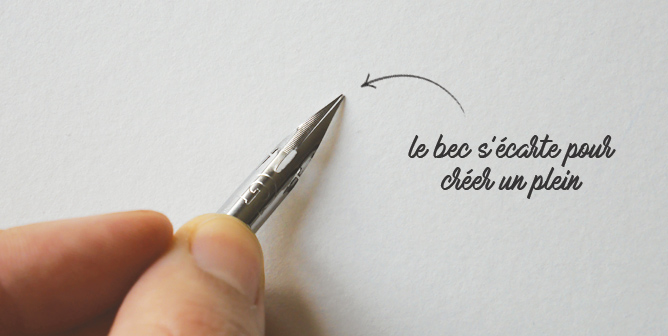 le bec s'écarte pour
créer un plein